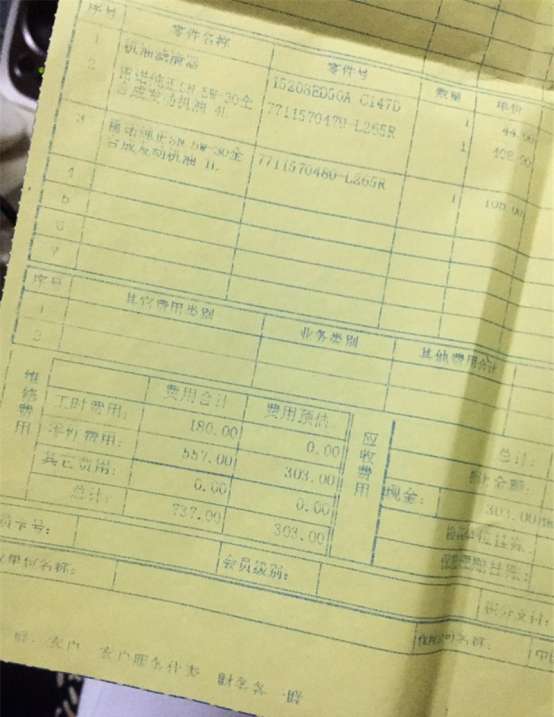 序号 零件名称 零件号 数量 单价
1 机油滤清器 15208ED50A C147D 1 44.00
2 5W-30全
合成发动机油 4L 7711570479-L265R 1 408.00
3 5W-30全
合成发动机油 1L 7711570480-L265R 1 105.00
4
5
6
7
序号 其它费用类别 业务类别 其他费用合计
1
2
维修费用 费用合计 费用预估 应收费用
工时费用: 180.00 0.00 总计:
零件费用: 557.00 303.00 金额:
其它费用: 0.00 0.00 现金: 303.00
总计: 737.00 303.00 挂账
挂账:
员卡号: 会员级别:
单位名称: 名称:
客户 客户服务代表 财务各一联